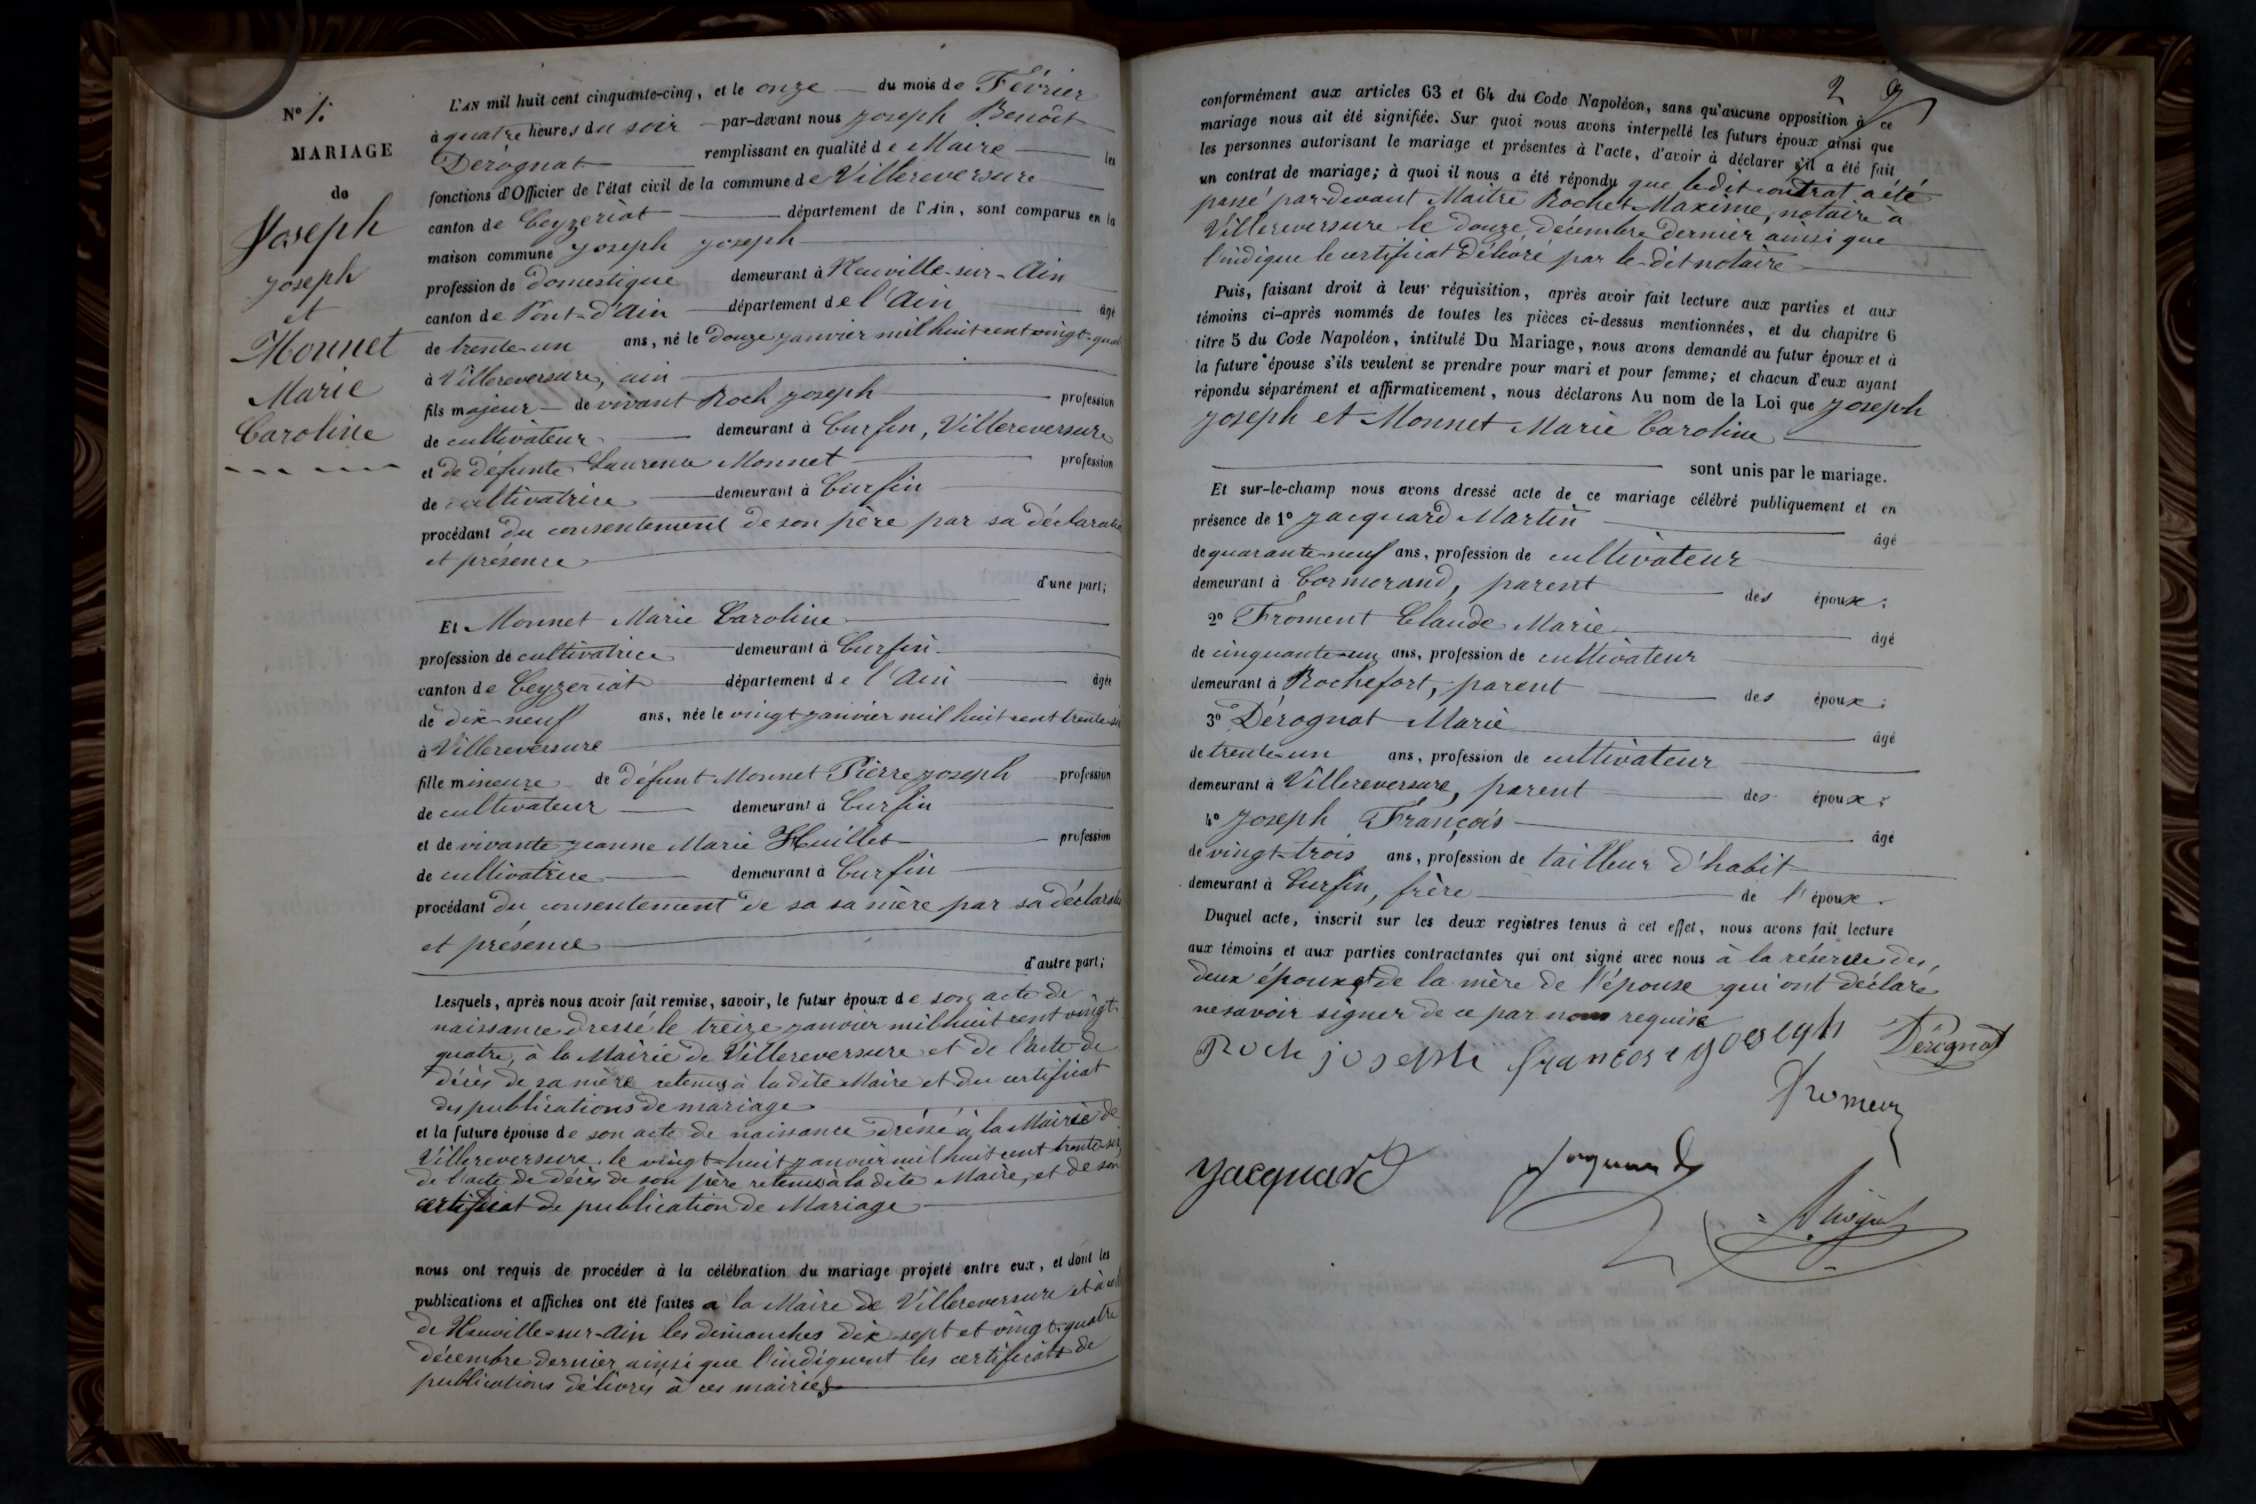 N° 1.
MARIAGE
de
Joseph
Joseph
et
Monnet
Marie
Caroline
L'AN mil huit cent cinquante-cinq, et le onze du mois de Février
à quatre heures du soir par-devant nous Joseph Benoit
Dérognat remplissant en qualité de Maire les
fonctions d'Officier de l'état civil de la commune de Villereversure
canton de Ceyzeriat département de l'Ain, sont comparus en la
maison commune Joseph Joseph
profession de domestique demeurant à Neuville-sur-Ain
canton de Pont-d'Ain département de l'Ain âgé
de trente-un ans, né le douze janvier mil huit cent vingt-quat
à Villereversure, ain
fils majeur de vivant Roch Joseph profession
de cultivateur demeurant à Curfin, Villereversure
et de défunte Laurence Monnet profession
de cultivatrice demeurant à Curfin
procédant du consentement de son père par sa déclaration
et présence
d'une part;
Et Monnet Marie Caroline
profession de cultivatrice demeurant à Curfin
canton de Ceyzeriat département de l'Ain âgée
de dix-neuf ans, née le vingt janvier mil huit cent trente-six
à Villereversure
fille mineure de défunt Monnet Pierre Joseph profession
de cultivateur demeurant à Curfin
et de vivante Jeanne Marie Huillet profession
de cultivatrice demeurant à Curfin
procédant du consentement de sa sa mère par sa déclaration
et présence
d'autre part;
Lesquels, après nous avoir fait remise, savoir, le futur époux de son acte de
naissance dressé le treize janvier mil huit cent vingt-
quatre, à la Mairie de Villereversure et de l'acte de
décès de sa mère retenus à la dite Maire et du certificat
des publications de mariage
et la future épouse de son acte de naissance dressé à la Mairie de
Villereversure, le vingt-huit janvier mil huit cent trente-six,
de l'acte de décès de son père retenus à la dite Maire, et de son
certificat de publication de Mariage
nous ont requis de procéder à la célébration du mariage projeté entre eux, et dont les
publications et affiches ont été faites a la Maire de Villereversure et à cell
de Neuville-sur-Ain les dimanches dix-sept et vingt-quatre
décembre dernier ainsi que l'indiquent les certificats de
publications délivrés à ces mairies
2
conformément aux articles 63 et 64 du Code Napoléon, sans qu'aucune opposition à ce
mariage nous ait été signifiée. Sur quoi nous avons interpellé les futurs époux ainsi que
les personnes autorisant le mariage et présentes à l'acte, d'avoir à déclarer s'il a été fait
un contrat de mariage; à quoi il nous a été répondu que le dit contrat a été
passé par-devant Maitre Rochet Maxime, notaire à
Villereversure le douze décembre dernier ainsi que
l'indique le certificat délivré par le dit notaire
Puis, faisant droit à leur réquisition, après avoir fait lecture aux parties et aux
témoins ci-après nommés de toutes les pièces ci-dessus mentionnées, et du chapitre 6
titre 5 du Code Napoléon, intitulé Du Mariage, nous avons demandé au futur époux et à
la future épouse s'ils veulent se prendre pour mari et pour femme; et chacun d'eux ayant
répondu séparément et affirmativement, nous déclarons Au nom de la Loi que Joseph
Joseph et Monnet Marie Caroline
sont unis par le mariage.
Et sur-le-champ nous avons dressé acte de ce mariage célébré publiquement et en
présence de 1° Jacquard Martin âgé
de quarante-neuf ans, profession de cultivateur
demeurant à Cormorand, parent des époux;
2° Froment Claude Marie âgé
de cinquante-un ans, profession de cultivateur
demeurant à Rochefort, parent des époux;
3° Dérognat Marie âgé
de trente-un ans, profession de cultivateur
demeurant à Villereversure, parent des époux;
4° Joseph François âgé
de vingt-trois ans, profession de tailleur d'habit
demeurant à Curfin, frère de l'époux.
Duquel acte, inscrit sur les deux registres tenus à cet effet, nous avons fait lecture
aux témoins et aux parties contractantes qui ont signé avec nous à la réserve des
deux époux et de la mère de l'épouse qui ont déclaré
ne savoir signer de ce par nous requise
Roch joseph françois joseph Dérognat
Froment
Jacquard Jacquard